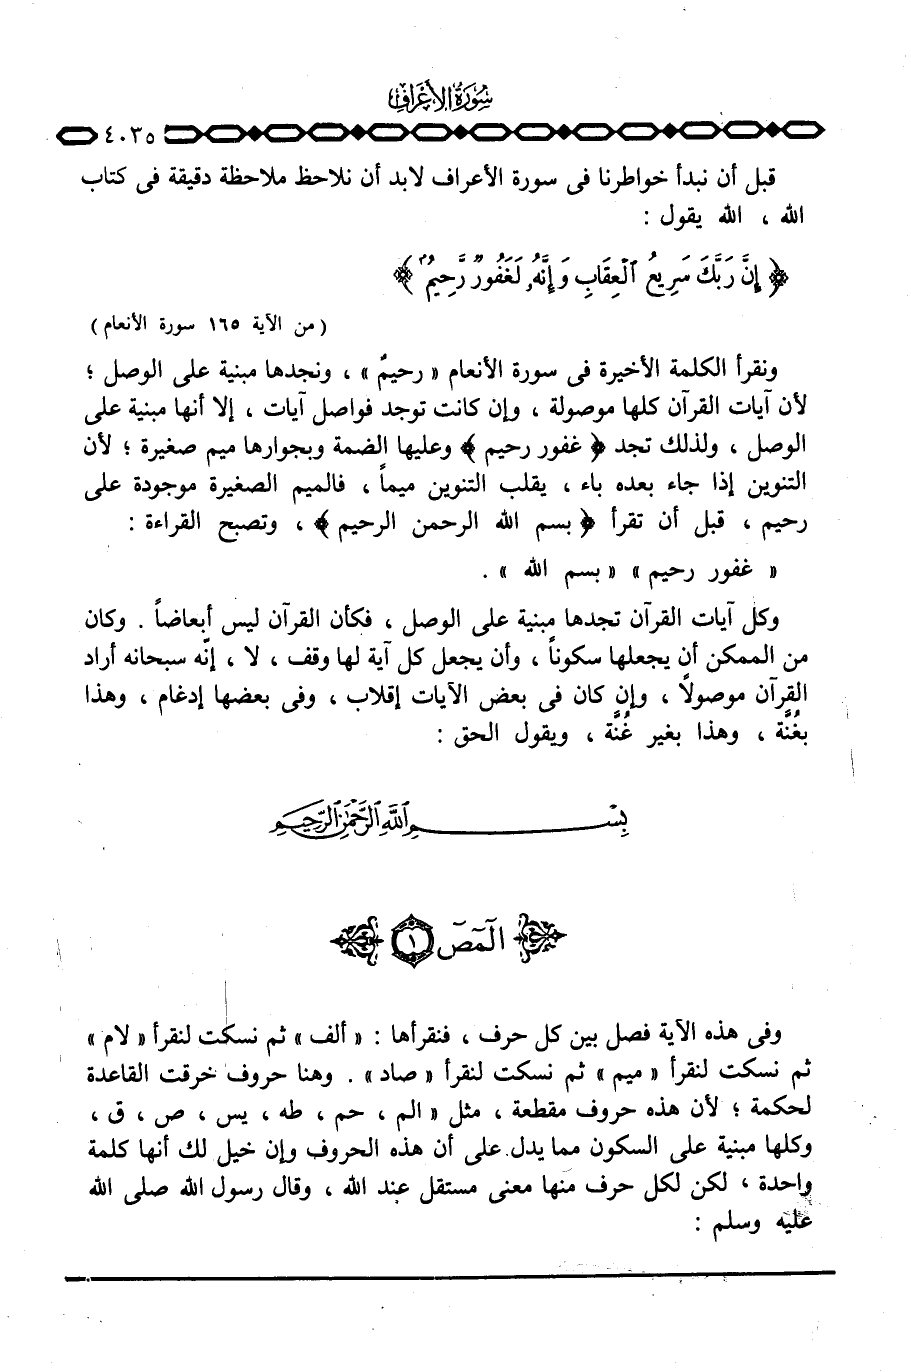 سُورَةُ الأَعْرَافِ
٤٠٣٥
قبل أن نبدأ خواطرنا فى سورة الأعراف لابد أن نلاحظ ملاحظة دقيقة فى كتاب
الله ، الله يقول :
﴿ إِنَّ رَبَّكَ سَرِيعُ ٱلْعِقَابِ وَإِنَّهُۥ لَغَفُورٌ رَّحِيمٌۢ ﴾
( من الآية ١٦٥ سورة الأنعام )
ونقرأ الكلمة الأخيرة فى سورة الأنعام « رحيمٌ » ، ونجدها مبنية على الوصل ؛
لأن آيات القرآن كلها موصولة ، وإن كانت توجد فواصل آيات ، إلا أنها مبنية على
الوصل ، ولذلك تجد ﴿ غفور رحيم ﴾ وعليها الضمة وبجوارها ميم صغيرة ؛ لأن
التنوين إذا جاء بعده باء ، يقلب التنوين ميماً ، فالميم الصغيرة موجودة على
رحيم ، قبل أن تقرأ ﴿ بسم الله الرحمن الرحيم ﴾ ، وتصبح القراءة :
« غفور رحيم » « بسم الله » .
وكل آيات القرآن تجدها مبنية على الوصل ، فكأن القرآن ليس أبعاضاً . وكان
من الممكن أن يجعلها سكوناً ، وأن يجعل كل آية لها وقف ، لا ، إنّه سبحانه أراد
القرآن موصولًا ، وإن كان فى بعض الآيات إقلاب ، وفى بعضها إدغام ، وهذا
بغُنَّة ، وهذا بغير غُنَّة ، ويقول الحق :
بِسْمِ ٱللَّهِ ٱلرَّحْمَٰنِ ٱلرَّحِيمِ
الٓمٓصٓ ١
وفى هذه الآية فصل بين كل حرف ، فنقرأها : « ألف » ثم نسكت لنقرأ « لام »
ثم نسكت لنقرأ « ميم » ثم نسكت لنقرأ « صاد » . وهنا حروف خرقت القاعدة
لحكمة ؛ لأن هذه حروف مقطعة ، مثل « الم ، حم ، طه ، يس ، ص ، ق ،
وكلها مبنية على السكون مما يدل على أن هذه الحروف وإن خيل لك أنها كلمة
واحدة ، لكن لكل حرف منها معنى مستقل عند الله ، وقال رسول الله صلى الله
عليه وسلم :